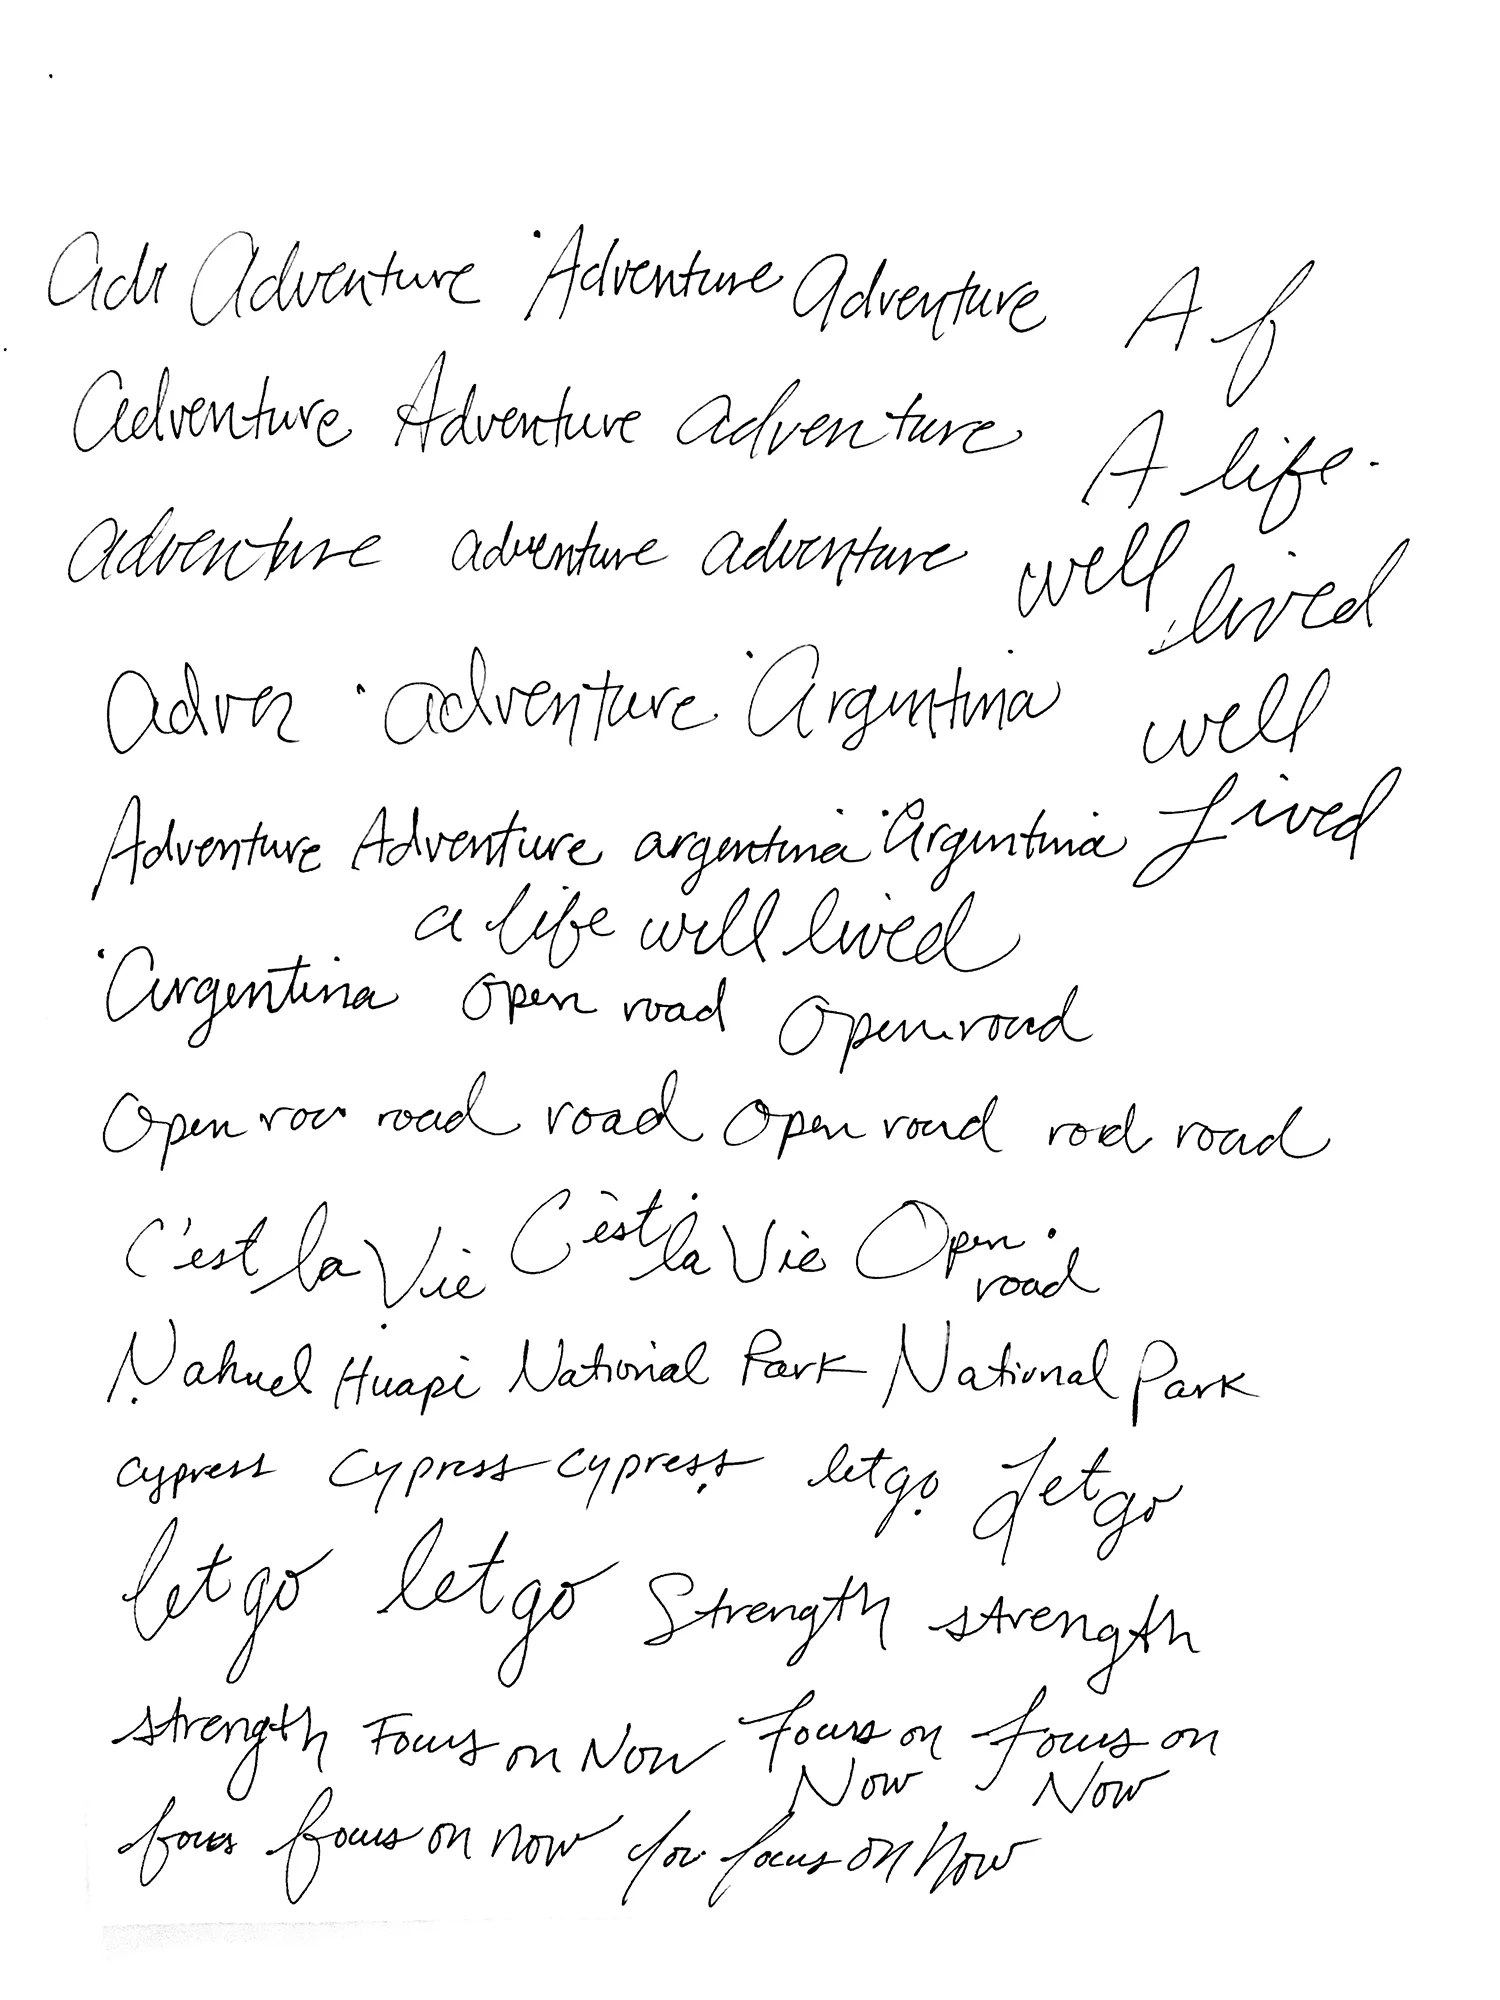 Adv Adventure Adventure Adventure A f
Adventure Adventure adventure A life
adventure adventure adventure well lived
Adven adventure Argentina well
Adventure Adventure argentina Argentina Lived
a life well lived
Argentina Open road Open road
Open roa road road Open road road road
C'est la Vie C'est la Vie Open road
Nahuel Huapi National Park National Park
cypress cypress cypress let go Let go
let go let go Strength strength
strength Focus on Now Focus on Now focus on Now
focus focus on now foc focus on Now